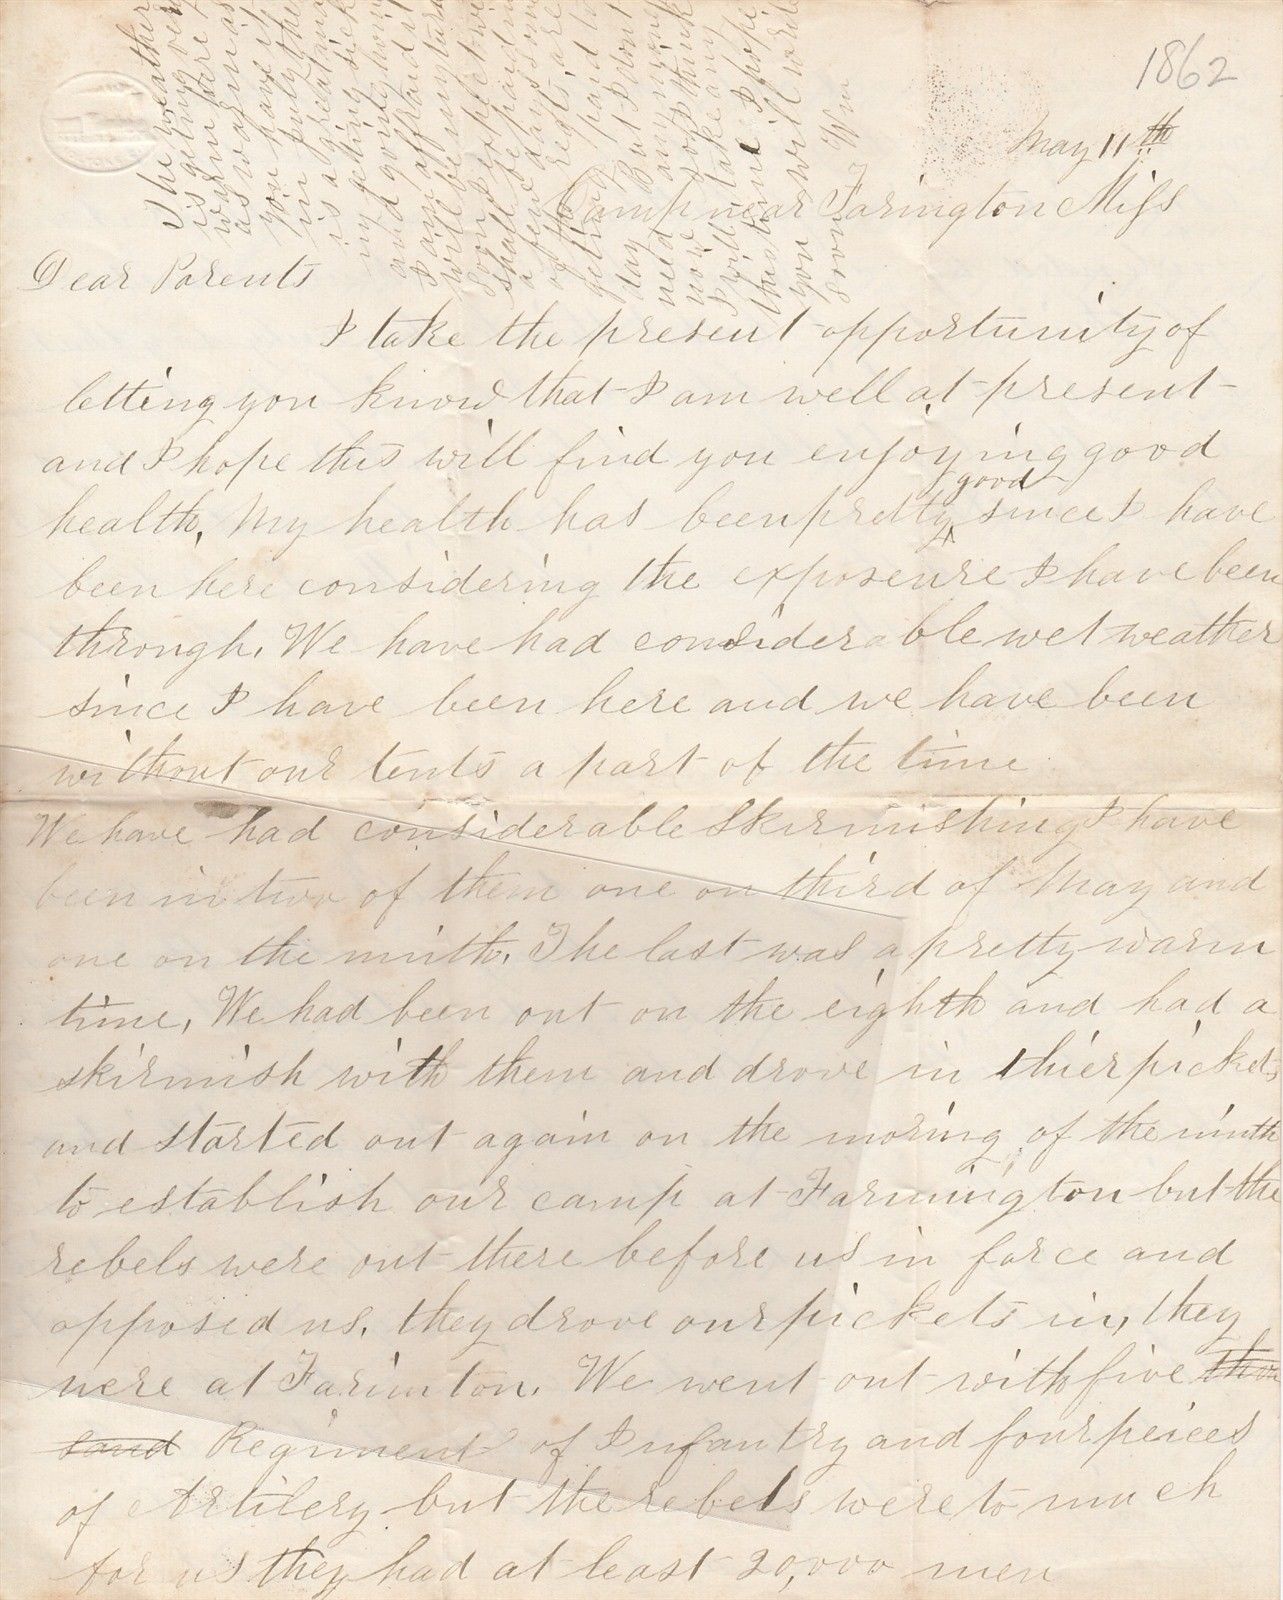 1862
May 11th
Camp near Farington Miss
Dear Parents
I take the present opportunity of
letting you know that I am well at present
and I hope this will find you enjoying good
health, My health has been pretty good since I have
been here considering the exposeure I have been
through. We have had considerable wet weather
since I have been here and we have been
without our tents a part of the time
We have had considerable Skirmishing I have
been in two of them one on third of May and
one on the ninth. The last was a pretty warm
time, We had been out on the eighth and had a
skirmish with them and drove in thier pickets
and started out again on the moring of the ninth
to establish our camp at Farmington but the
rebels were out there before us in force and
opposed us. they drove our pickets in, they
were at Farimton. We went out with five thou
sand Regiment of Infantry and four peices
of Artilery but the rebels were to much
for us they had at least 20,000 men
The weather
is geting very
warm here
as warm as
you have it
in July there
is a great many
my geting sick
and going home
I am affraid it
will be my turn
soon I expect we
shall be paid in
a few days some
of the regts are
geting paid to
day But I dont
need any money
now so I think
I will take any
this time I hope
you will write
soon Wm